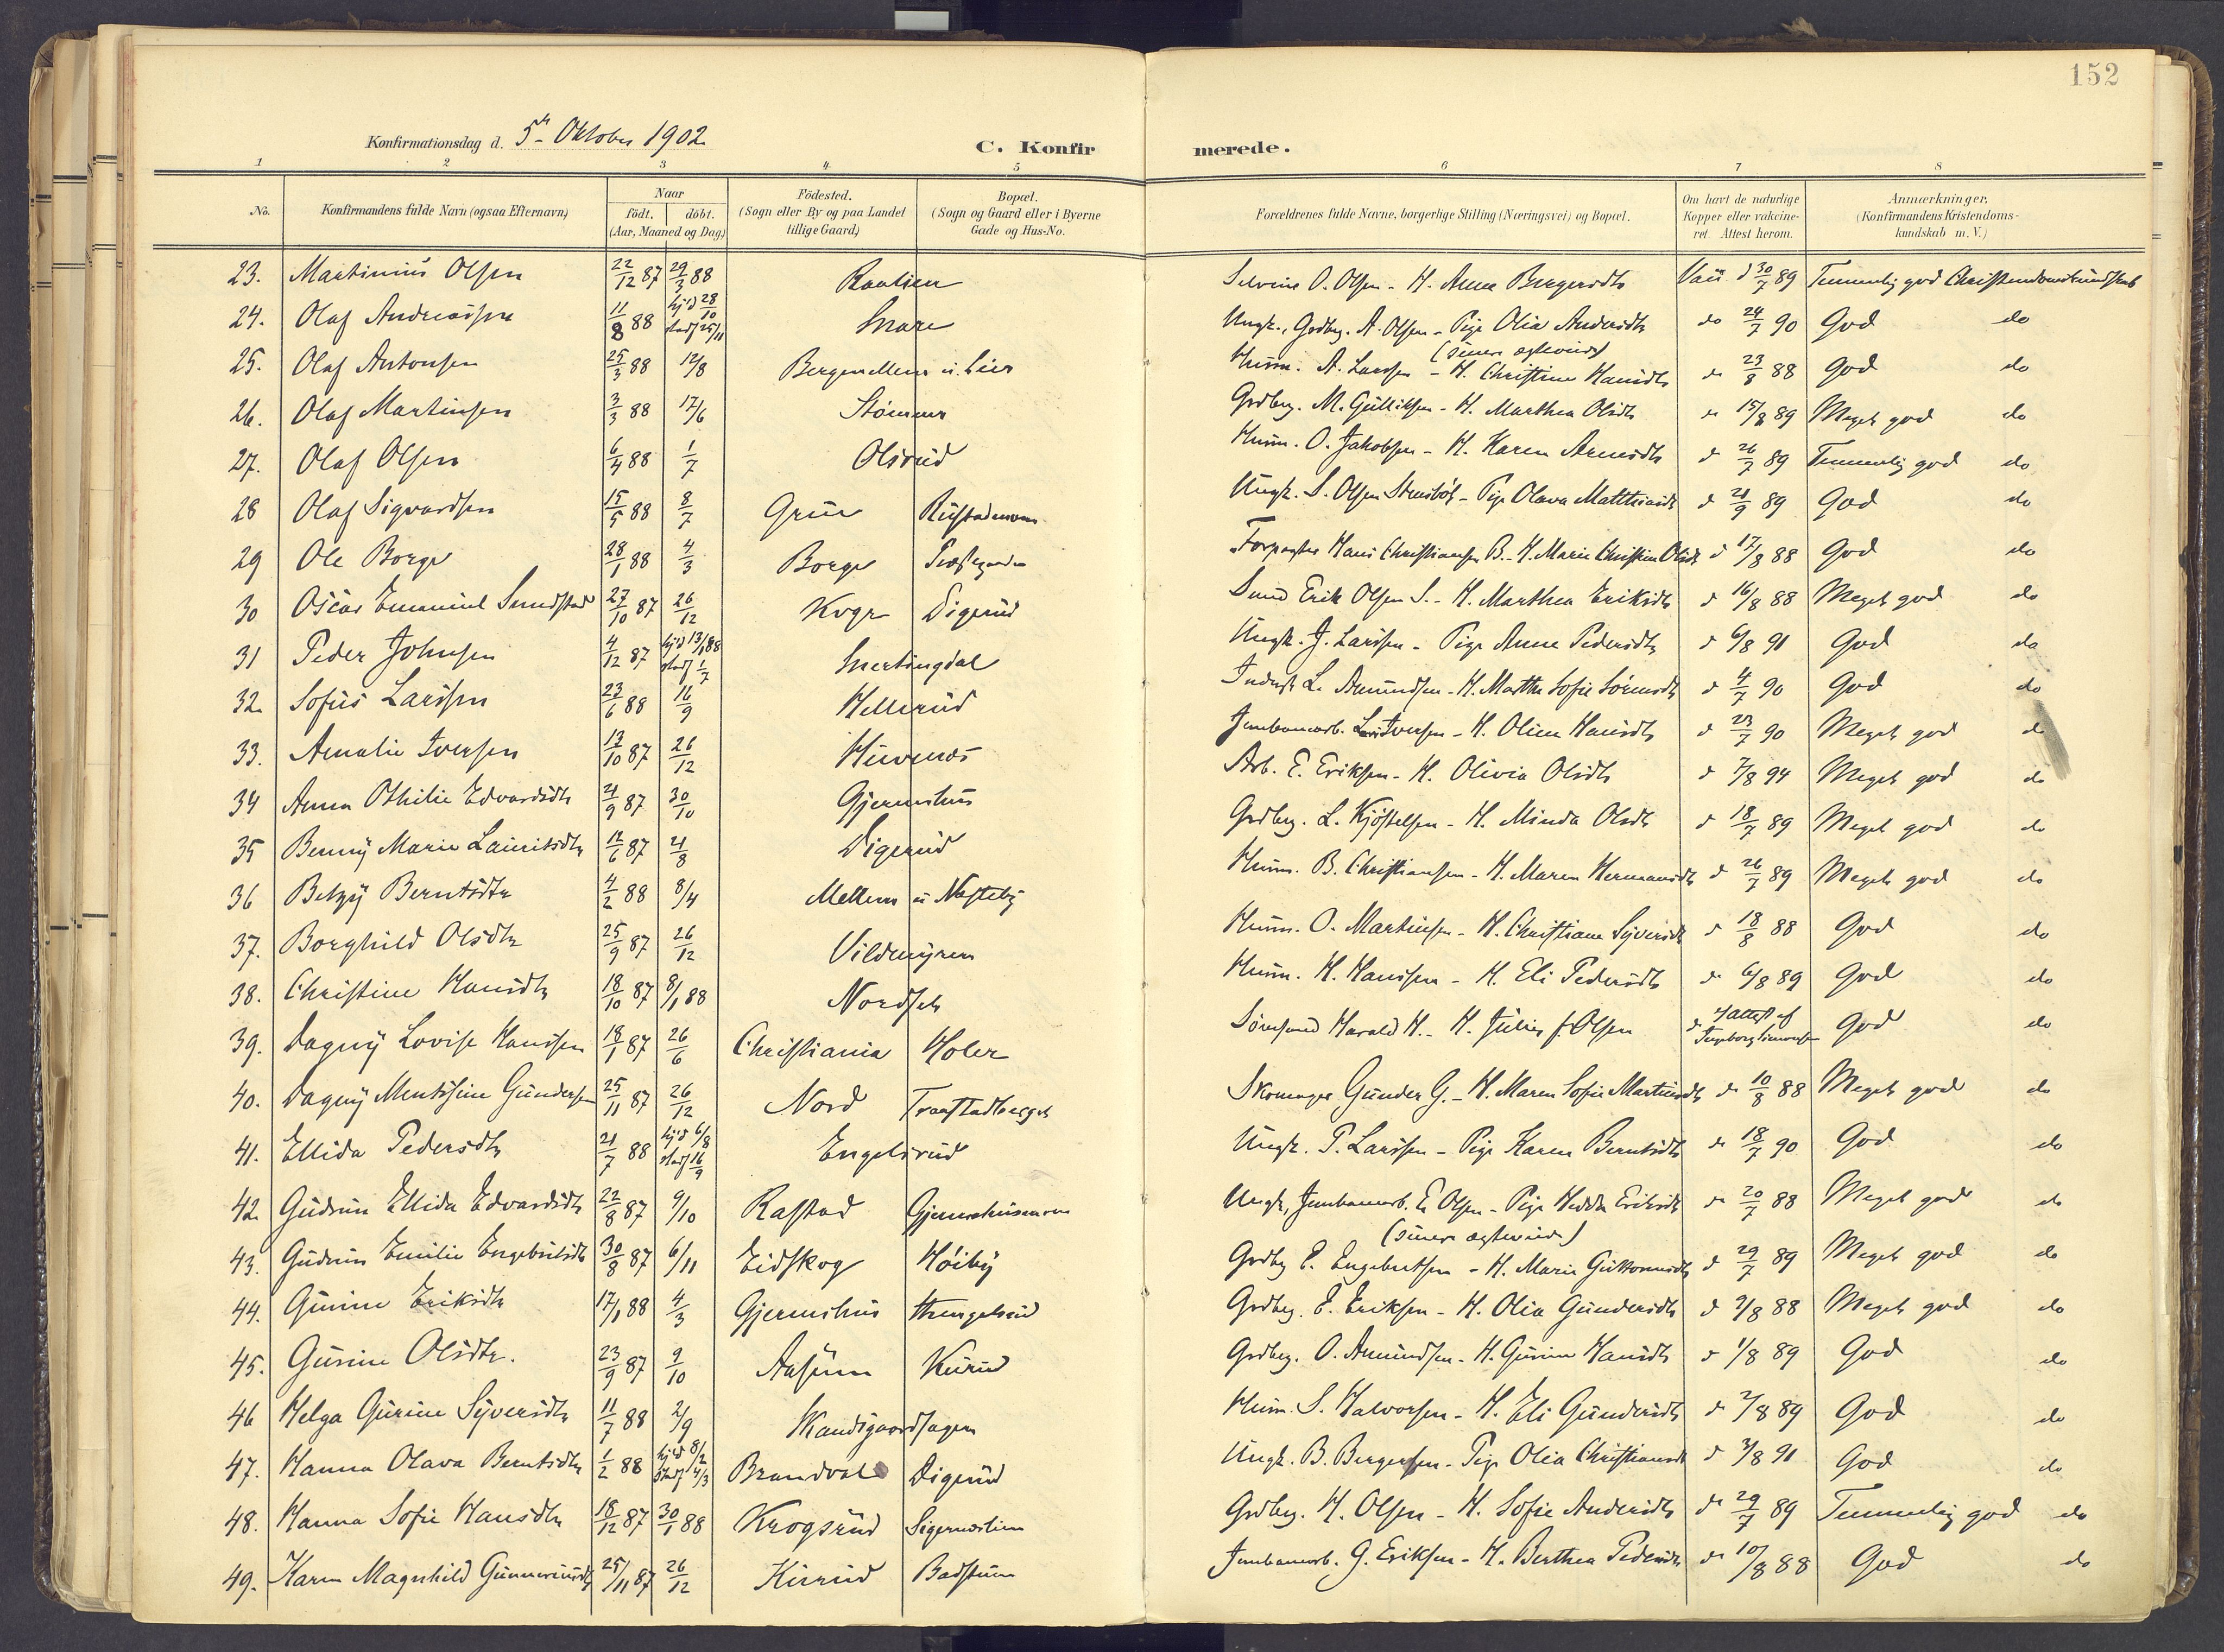 152
Konfirmationsdag d. 5te Oktober 1902
C. Konfirmerede.
1 2 3 4 5 6 7 8
No. Konfirmandens fulde Navn (ogsaa Efternavn) Naar födt. döbt. (Aar, Maaned og Dag) Födested. (Sogn eller By og paa Landet tillige Gaard) Bopæl. (Sogn og Gaard eller i Byerne Gade og Hus-No. Forældrenes fulde Navne, borgerlige Stilling (Næringsvei) og Bopæl. Om havt de naturlige Kopper eller vakcineret Attest herom. Anmærkninger. (Konfirmandens Kristendomskundskab m. V.)
23. Martinius Olsen 22/12 87 29/3 88 O. Olsen - H. Anne Bergersdtr 30/7 89 Temmelig god Christendomskundskab
24. Olaf Andreassen 11/8 88 hjd 28/10 stadf 25/11 Snare Ungk., Grdbrg. A. Olsen - Pige Olia Andersdtr do 24/7 90 God do
25. Olaf Antonsen 25/3 88 12/8 Husm. A. Larsen - H. Christine Hansdtr 23/8 88 God do
26. Olaf Martinsen 3/3 88 17/6 Stömner Grdbrg. M. Gulliksen - H. Marthea Olsdtr 15/8 89 Meget god do
27. Olaf Olsen 6/4 88 1/7 Olsrud Husm. O. Jakobsen - H. Karen Arnesdtr 26/7 89 Temmelig god do
28 Olaf Sigvardsen 15/5 88 8/7 Grue Ungk. S. Olsen - Pige Olava Matthiasdtr 21/9 89 God do
29 Ole Borge 28/1 88 4/3 Borge Præstegaarden Forpagter Hans Christiansen B. - H. Marie Christine Olsdtr 17/8 88 God do
30 Oscar Emanuel Sundstad 27/10 87 26/12 Digerud Smed Erik Olsen S. - H. Marthea Eriksdtr 16/8 88 Meget god do
31 Peder Johnsen 4/12 87 hjd 13/1 88 stadf 1/7 Smertingdal Ungk. J. Larsen - Pige Anne Pedersdtr 6/8 91 God do
32. Sofus Larsen 23/6 88 16/9 Hellerud Inderst L. Amundsen - H. Marthe Sofie Sörensdtr 4/7 90 God do
33. Amalie Iversen 13/10 87 26/12 Jernbanearb. Lars Iversen - H. Oline Hansdtr 23/7 90 Meget god do
34 Anna Othilie Edvardsdtr 21/9 87 30/10 Gjermshus Arb. E. Eriksen - H. Olivia Olsdtr 7/8 94 Meget god do
35 Benny Marie Lauritsdtr 12/6 87 21/8 Digerud Grdbrg. L. Kjöstelsen - H. Minda Olsdtr 18/7 89 Meget god do
36 Betzy Berntsdtr 4/2 88 8/4 Mellem Husm. B. Christiansen - H. Maren Hermansdtr 26/7 89 Meget god do
37. Borghild Olsdtr 25/9 87 26/12 Vildmyren Husm. O. Martinsen - H. Christiane Syversdtr 18/8 88 God do
38. Christine Hansdtr 18/10 87 8/1 88 Nordset Husm. H. Hansen - H. Eli Pedersdtr 6/8 89 God do
39. Dagny Lovise Hansen 18/1 87 26/6 Christiania Holer Harald H. - H. Julie f. Olsen Attest af Ingeborg Simonsen God do
40. Dagny Gundersen 25/11 87 26/12 Nord Traastadberget Skomager Gunder G. - H. Maren Sofie Martinsdtr 10/8 88 Meget god do
41. Ellida Pedersdtr 21/7 88 hjd 6/8 stadf 16/9 Engelsrud Ungk. P. Larsen - Pige Karen Berntsdtr 18/7 90 God do
42. Gudrun Ellida Edvardsdtr 22/8 87 9/10 Rastad Ungk, Jernbanearb. E. Olsen - Pige Hedda Eriksdtr 20/7 88 Meget god do
43. Gudrun Emilie Engebretsdtr 30/8 87 6/11 Eidskog Höiby Grdbrg E. Engebretsen - H. Marie Guttormsdtr 29/7 89 Meget god do
44. Gunine Eriksdtr 17/1 88 4/3 Gjermshus Grdbrg. E. Eriksen - H. Olia Gundersdtr 9/8 88 Meget god do
45. Gurine Olsdtr. 23/9 87 9/10 Aasum Kurud Grdbrg. O. Amundsen - H. Gurine Hansdtr 1/8 89 God do
46 Helga Gurine Syversdtr 11/7 88 2/9 Husm. S. Halvorsen - H. Eli Gundersdtr 2/8 89 God do
47. Hanna Olava Berntsdtr 1/2 88 hjd 8/2 stadf 4/3 Brandval Digerud Ungk. B. Bergersen - Pige Olia Christiansdtr 3/8 91 God do
48. Hanna Sofie Hansdtr 18/12 87 30/1 88 Krogsrud Sigernæslien Grdbrg. H. Olsen - H. Sofie Andersdtr 29/7 89 Temmelig god do
49. Karen Magnhild Gunneriusdtr 25/11 87 26/12 Kurud Badstuen Jernbanearb. G. Eriksen - H. Berthea Pedersdtr 10/8 88 God do